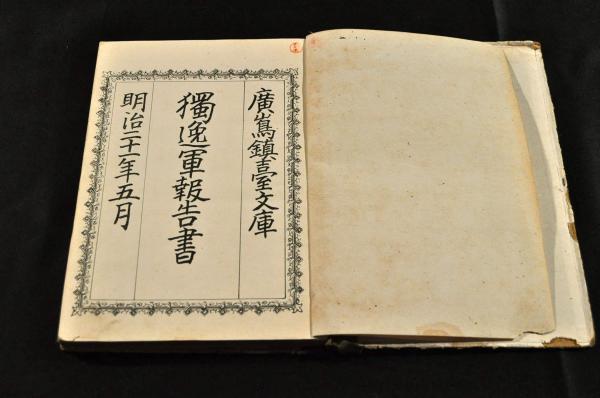 廣嶌鎮臺文庫
獨逸軍報告書
明治二十一年五月